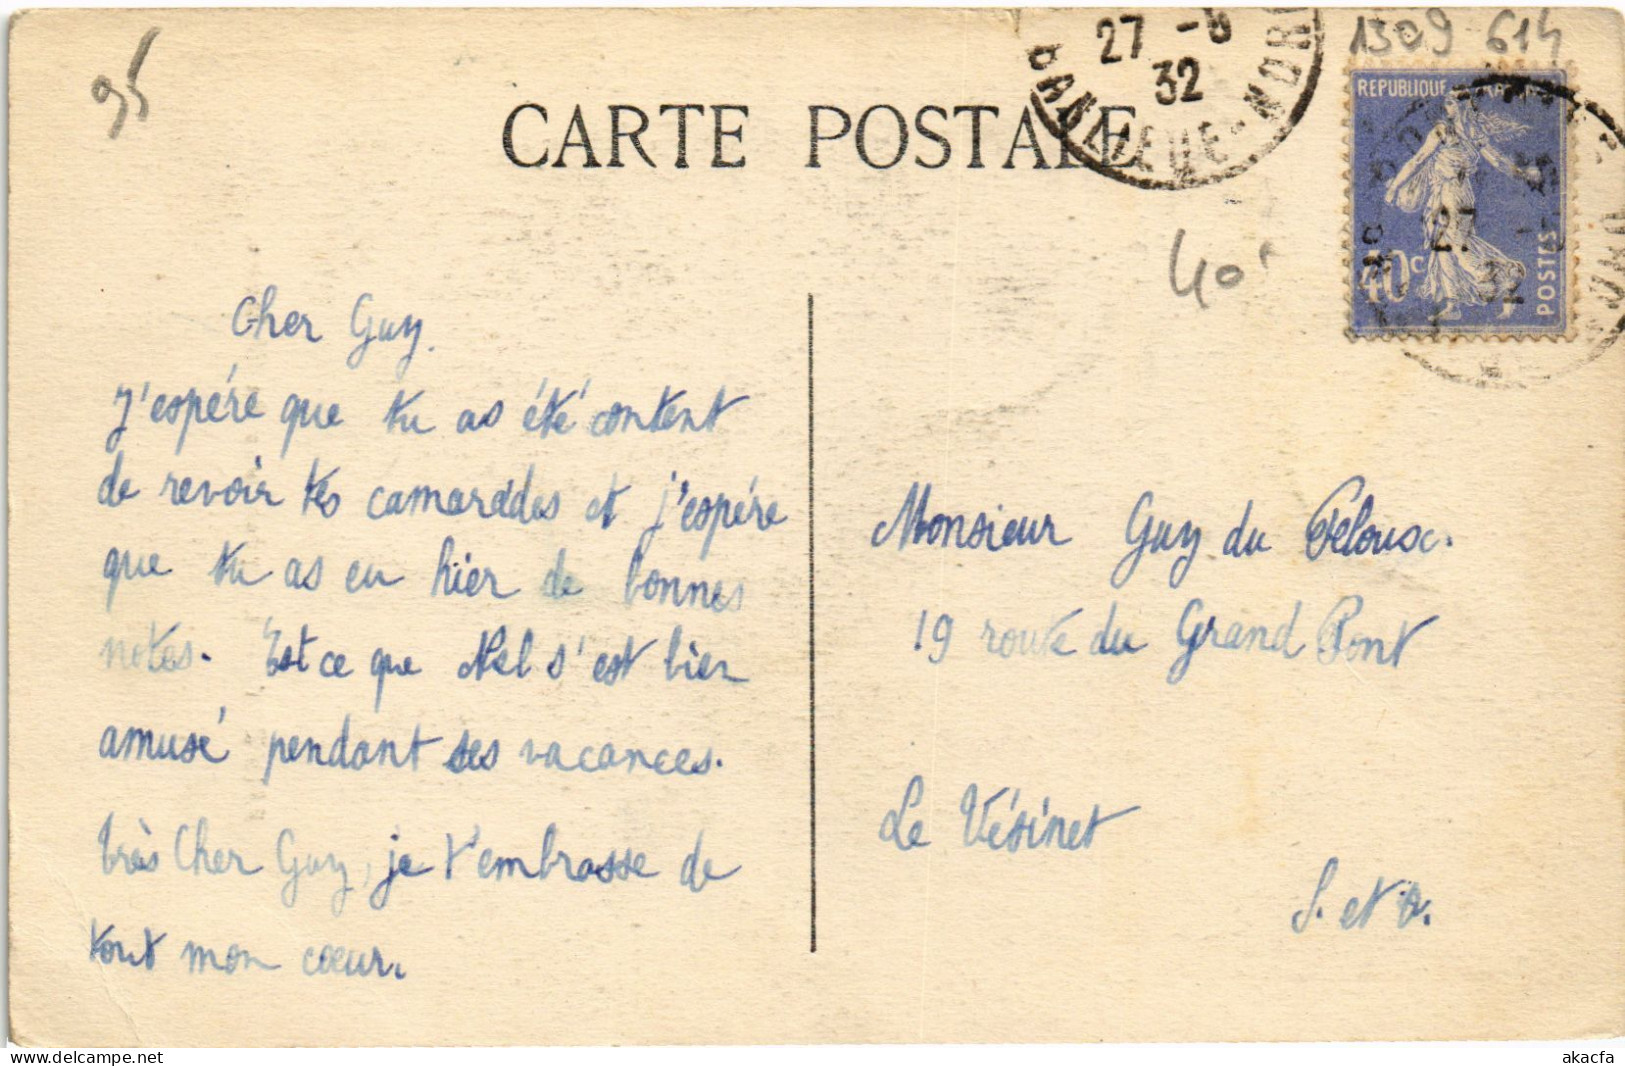 95
CARTE POSTALE
27 -8
32
BANLIEUE-NOR
1309 614
REPUBLIQUE FRANÇAISE
40c
POSTES
27
32
40
Cher Guy.
J'espére que tu as été content
de revoir tes camarades et j'espére
que tu as eu hier de bonnes
notes. Est ce que s'est bien
amusé pendant ses vacances.
très Cher Guy, je t'embrasse de
tout mon cœur.
Monsieur Guy du Peloux.
19 route du Grand Pont
Le Vésinet
S. et O.
delcampe.net
akacfa